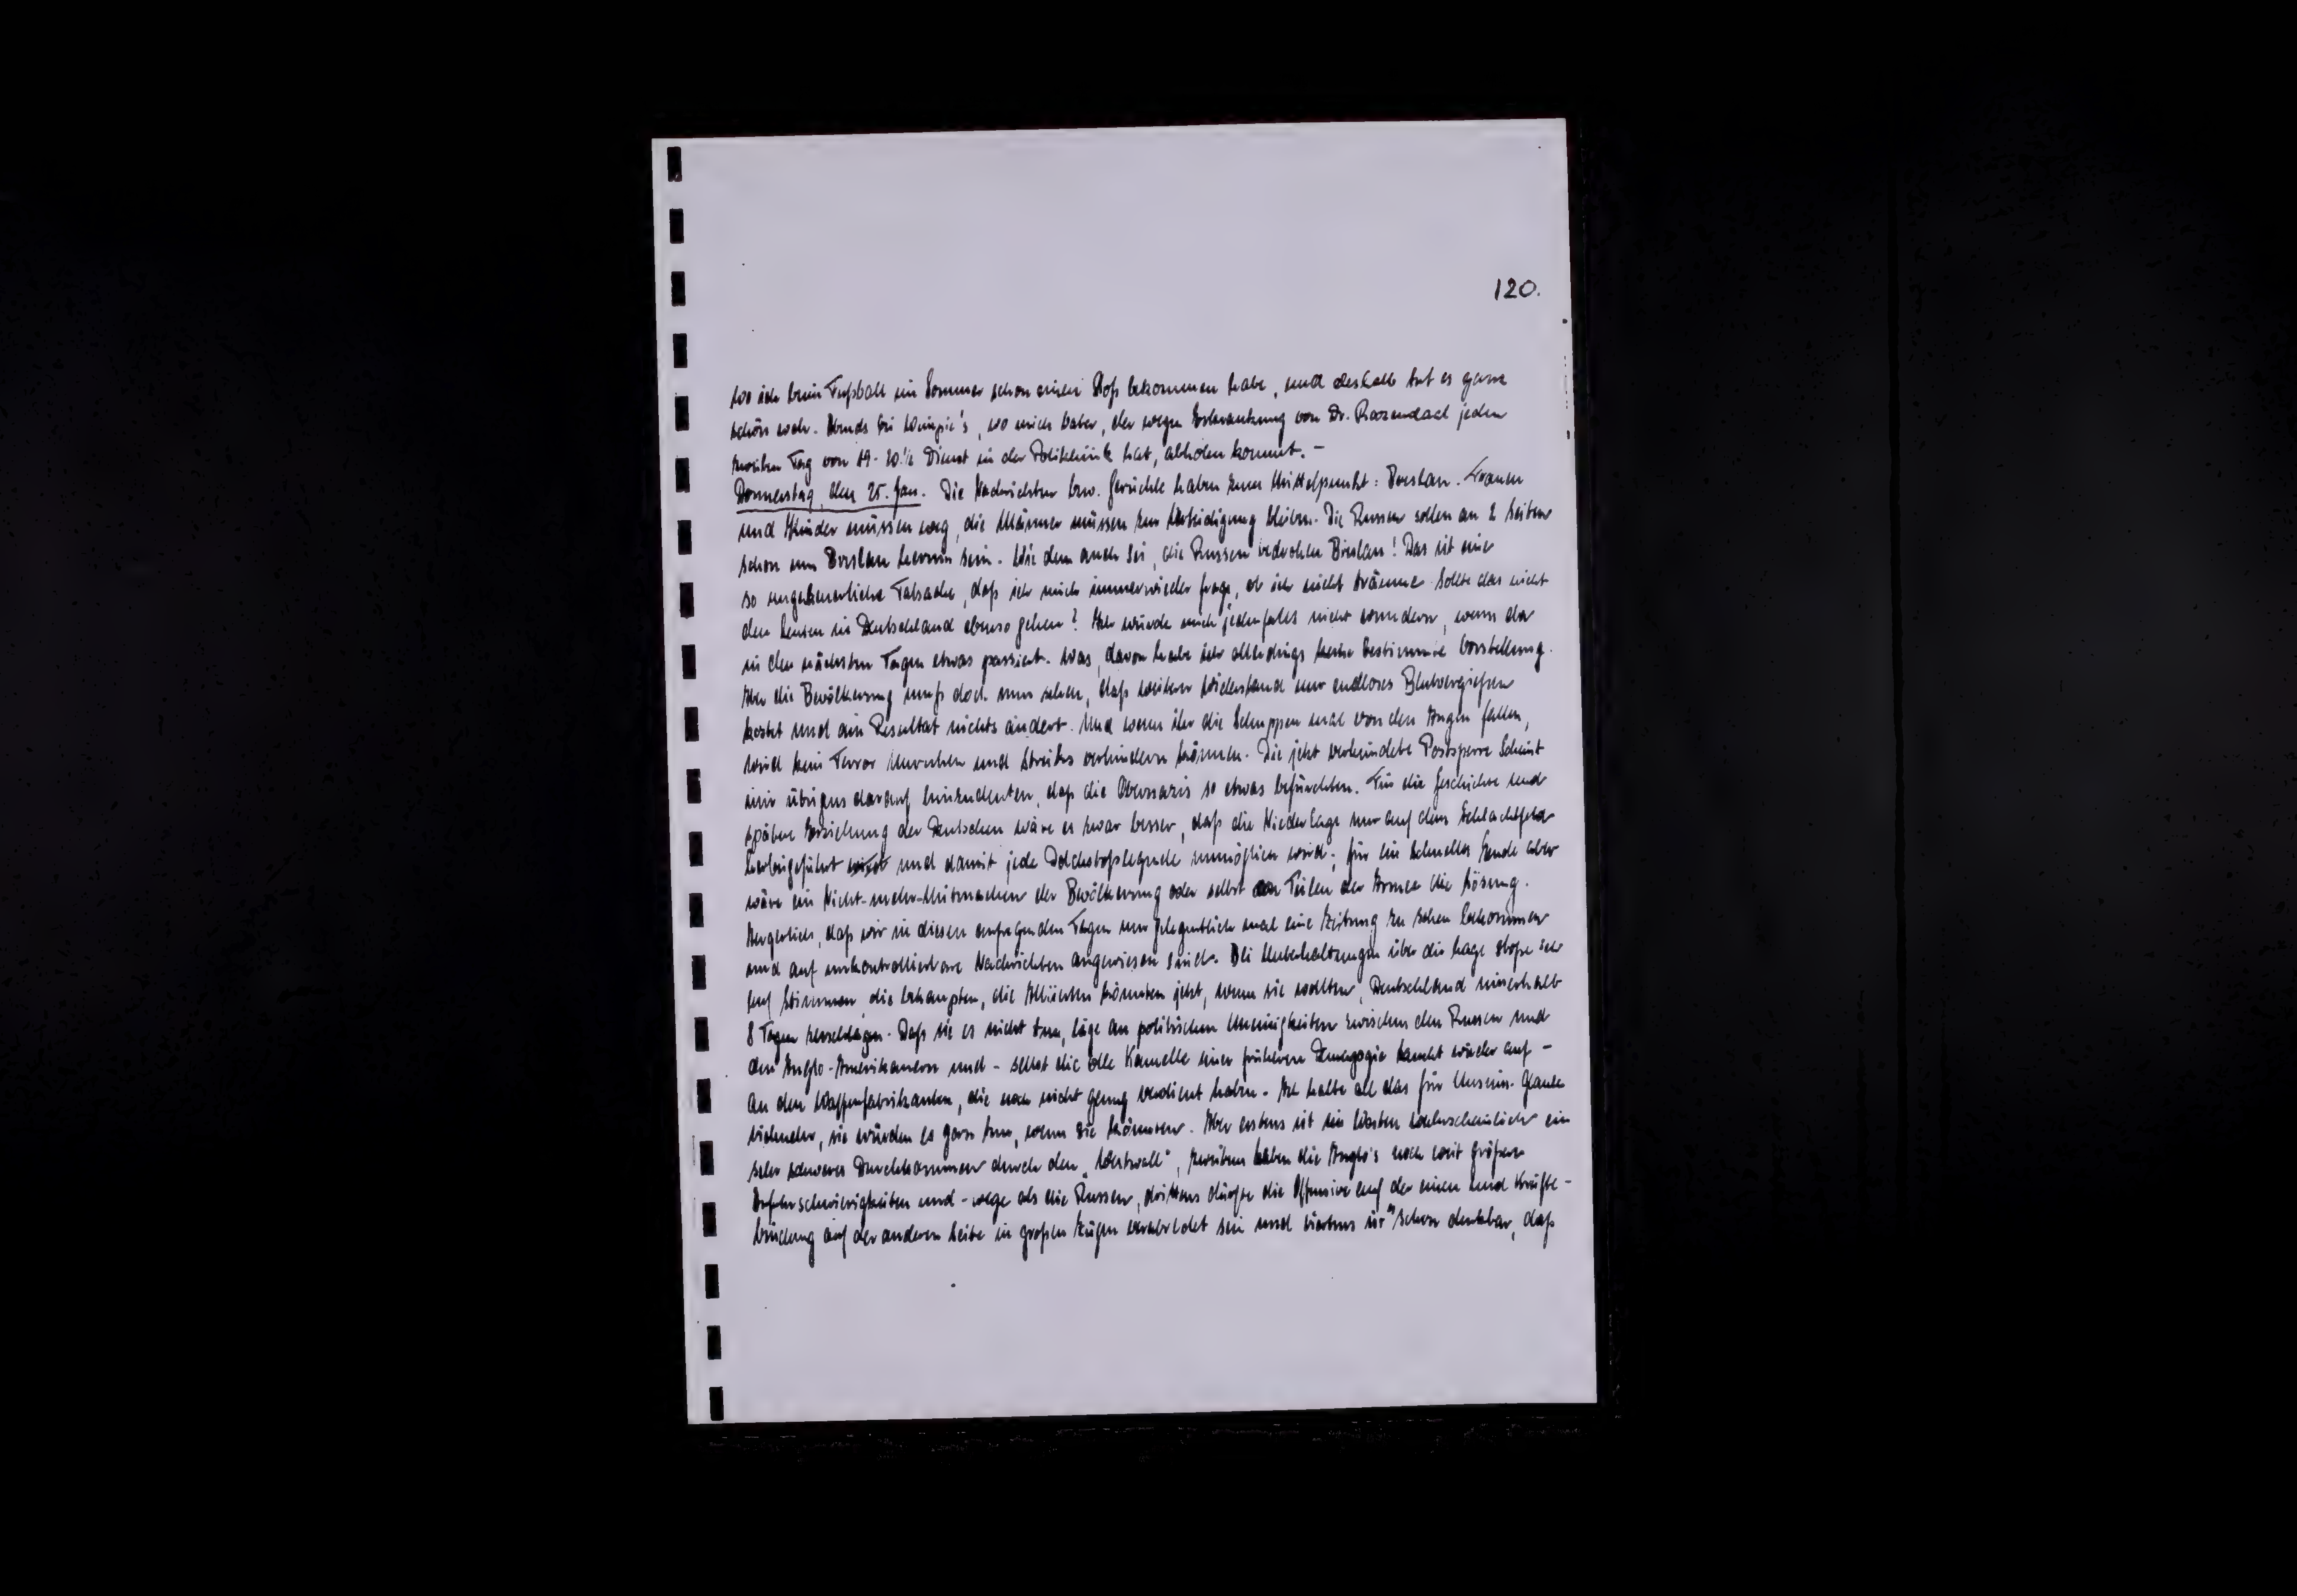 120.
wo ich beim Fußball im Sommer schon einen Stoß bekommen habe, und deshalb tut es ganz
schön weh. Abends bei , wo mich Vater, der wegen Erkrankung von Dr. Roozendaal jeden
zweiten Tag von 19-20½ Dienst in der Poliklinik hat, abholen kommt. -
Donnerstag, den 25. Jan. Die Nachrichten bzw. Gerüchte haben zum Mittelpunkt: Breslau. Frauen
und Kinder müssen weg, die Männer müssen zur Verteidigung bleiben. Die Russen sollen an 2 Seiten
schon um Breslau herum sein. Wie dem auch sei, die Russen bedrohen Breslau! Das ist eine
so ungeheuerliche Tatsache, daß ich mich immer wieder frage, ob ich nicht träume. Sollte das nicht
den Leuten in Deutschland ebenso gehen? Ich würde mich jedenfalls nicht wundern, wenn da
in den nächsten Tagen etwas passiert. Was, davon habe ich allerdings keine bestimmte Vorstellung.
Aber die Bevölkerung muß doch nun sehen, daß weiterer Widerstand nur endloses Blutvergießen
kostet und am Resultat nichts ändert. Und wenn ihr die Schuppen mal von den Augen fallen,
wird kein Terror Unruhen und Streiks verhindern können. Die jetzt verkündete Postsperre scheint
mir übrigens darauf hinzudeuten, daß die Obernazis so etwas befürchten. Für die Geschichte und
spätere Erziehung der Deutschen wäre es zwar besser, daß die Niederlage nur auf dem Schlachtfeld
herbeigeführt und damit jede Dolchstoßlegende unmöglich wird; für ein schnelles Ende aber
wäre ein Nicht-mehr-Mitmachen der Bevölkerung oder selbst von Teilen der Armee die Lösung.
Aergerlich, daß wir in diesen aufregenden Tagen nur gelegentlich mal eine Zeitung zu sehen bekommen
und auf unkontrollierbare Nachrichten angewiesen sind. Bei Unterhaltungen über die Lage stoße ich
auf Stimmen, die behaupten, die Alliierten könnten jetzt, wenn sie wollten, Deutschland innerhalb
8 Tagen zerschlagen. Daß sie es nicht tun, läge an politischen Uneinigkeiten zwischen den Russen und
den Anglo-Amerikanern und - selbst die olle Kamelle einer früheren Demagogie taucht wieder auf -
an den Waffenfabrikanten, die noch nicht genug verdient haben. Ich halte all das für Unsinn. Glaube
vielmehr, sie würden es gern tun, wenn sie könnten. Aber erstens ist im Westen wahrscheinlich ein
sehr schweres Durchkommen durch den „Westwall", zweitens haben die Anglo's noch weit größere
Anfuhrschwierigkeiten und -wege als die Russen, drittens dürfte die Offensive auf der einen und Kräfte-
bindung auf der anderen Seite in großen Zügen verabredet sein und viertens ist schon denkbar, daß